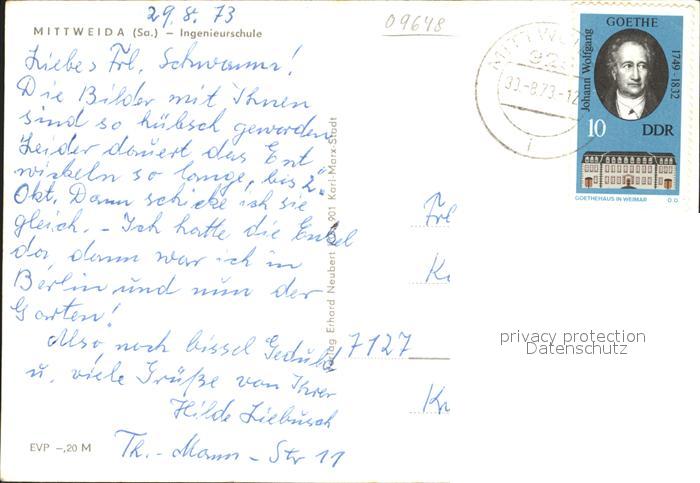 29.8.73
09648
MITTWEIDA (Sa.) – Ingenieurschule
Liebes Frl. Schwamm!
Die Bilder mit Ihnen
sind so hübsch geworden.
Leider dauert das Ent
wickeln so lange, bis 2.
Okt. Dann schicke ich sie
gleich. – Ich hatte die Enkel
da, dann war ich in
Berlin und nun der
Garten!
Also, noch bissel Geduld
u. viele Grüße von Ihrer
Hilde Liebusch
Th.-Mann-Str 11
EVP –,20 M
Verlag Erhard Neubert 901 Karl-Marx-Stadt
Frl
7127
MITTW
30.-8.73-12
GOETHE
Johann Wolfgang
1749-1832
10 DDR
GOETHEHAUS IN WEIMAR
privacy protection
Datenschutz